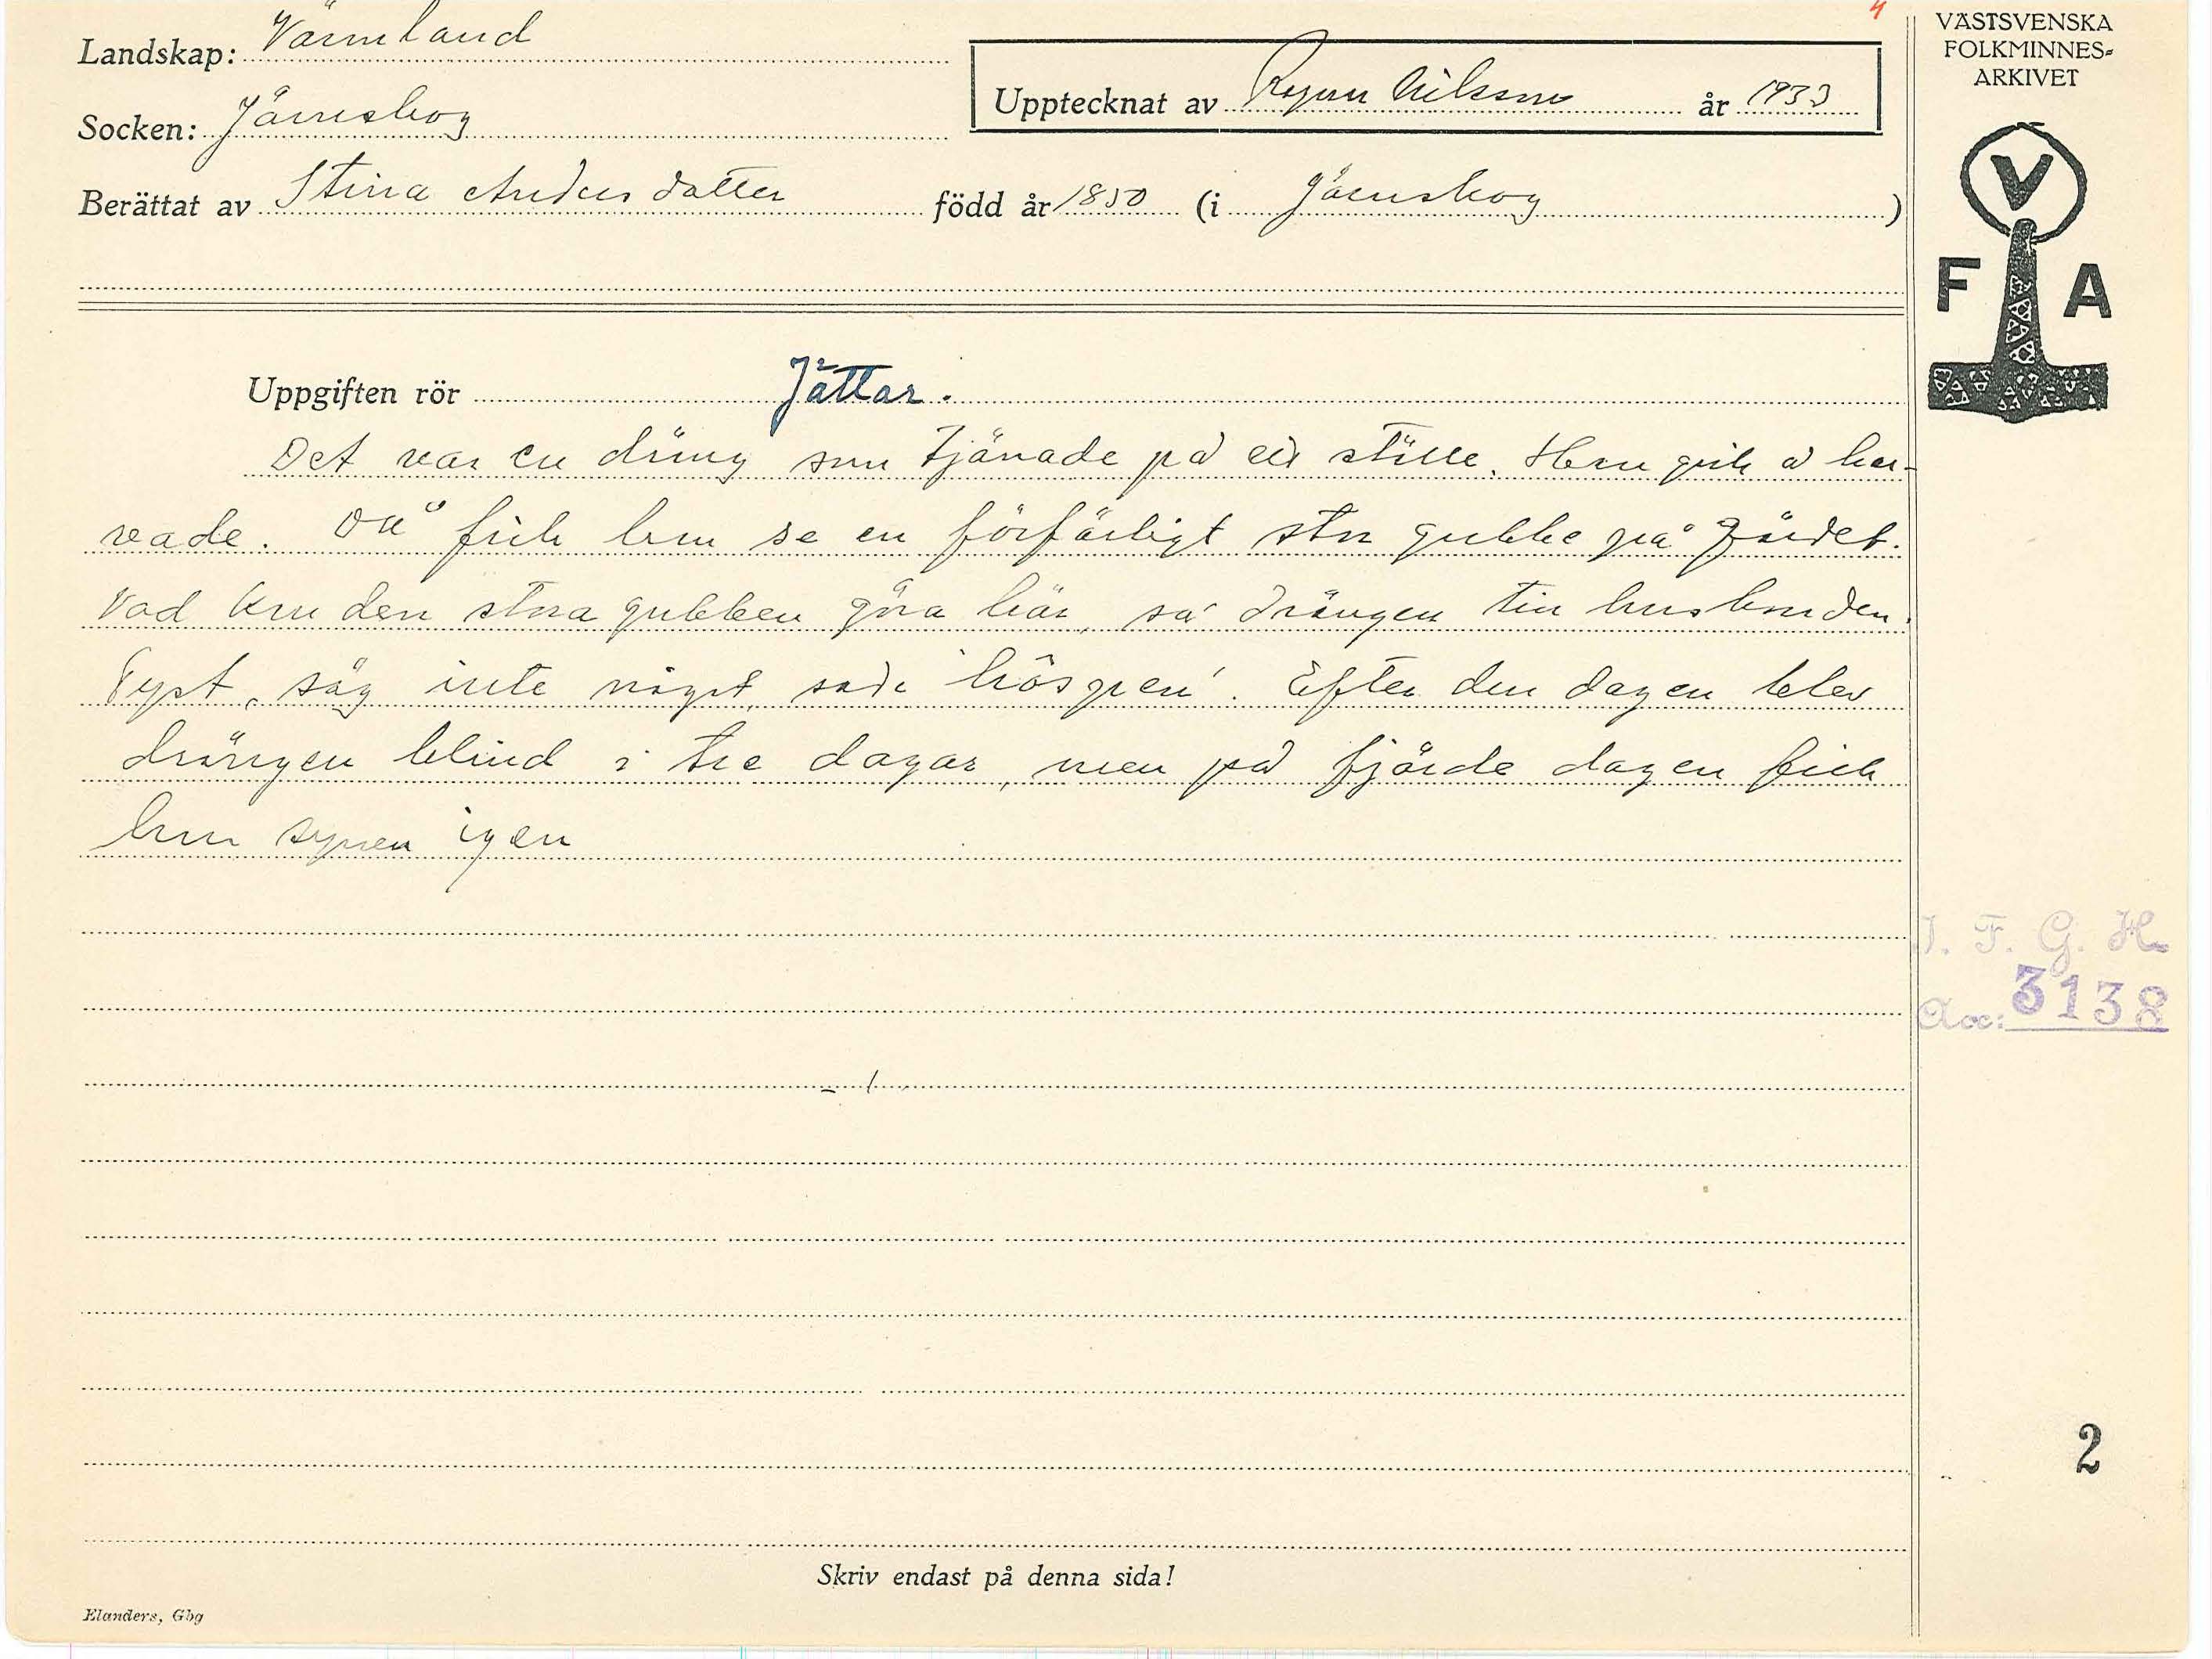 4
Landskap: Värmland
Socken: Järnskog
Upptecknat av Ragnar Nilsson år 1933
Berättat av Stina Andersdotter född år 1850 (i Järnskog)
VÄSTSVENSKA
FOLKMINNES-
ARKIVET
V
F A
Uppgiften rör Jättar.
Det var en dräng som tjänade på ett ställe. Han gick å har-
vade. Då fick han se en förfärligt stor gubbe på gärdet.
Vad kan den stora gubben göra här, sa' drängen till husbonden.
Tyst, säg inte något, sade Efter den dagen blev
drängen blind i tre dagar, men på fjärde dagen fick
han synen igen
I. F. G. H.
Acc: 3138
2
Skriv endast på denna sida!
Elanders, Gbg